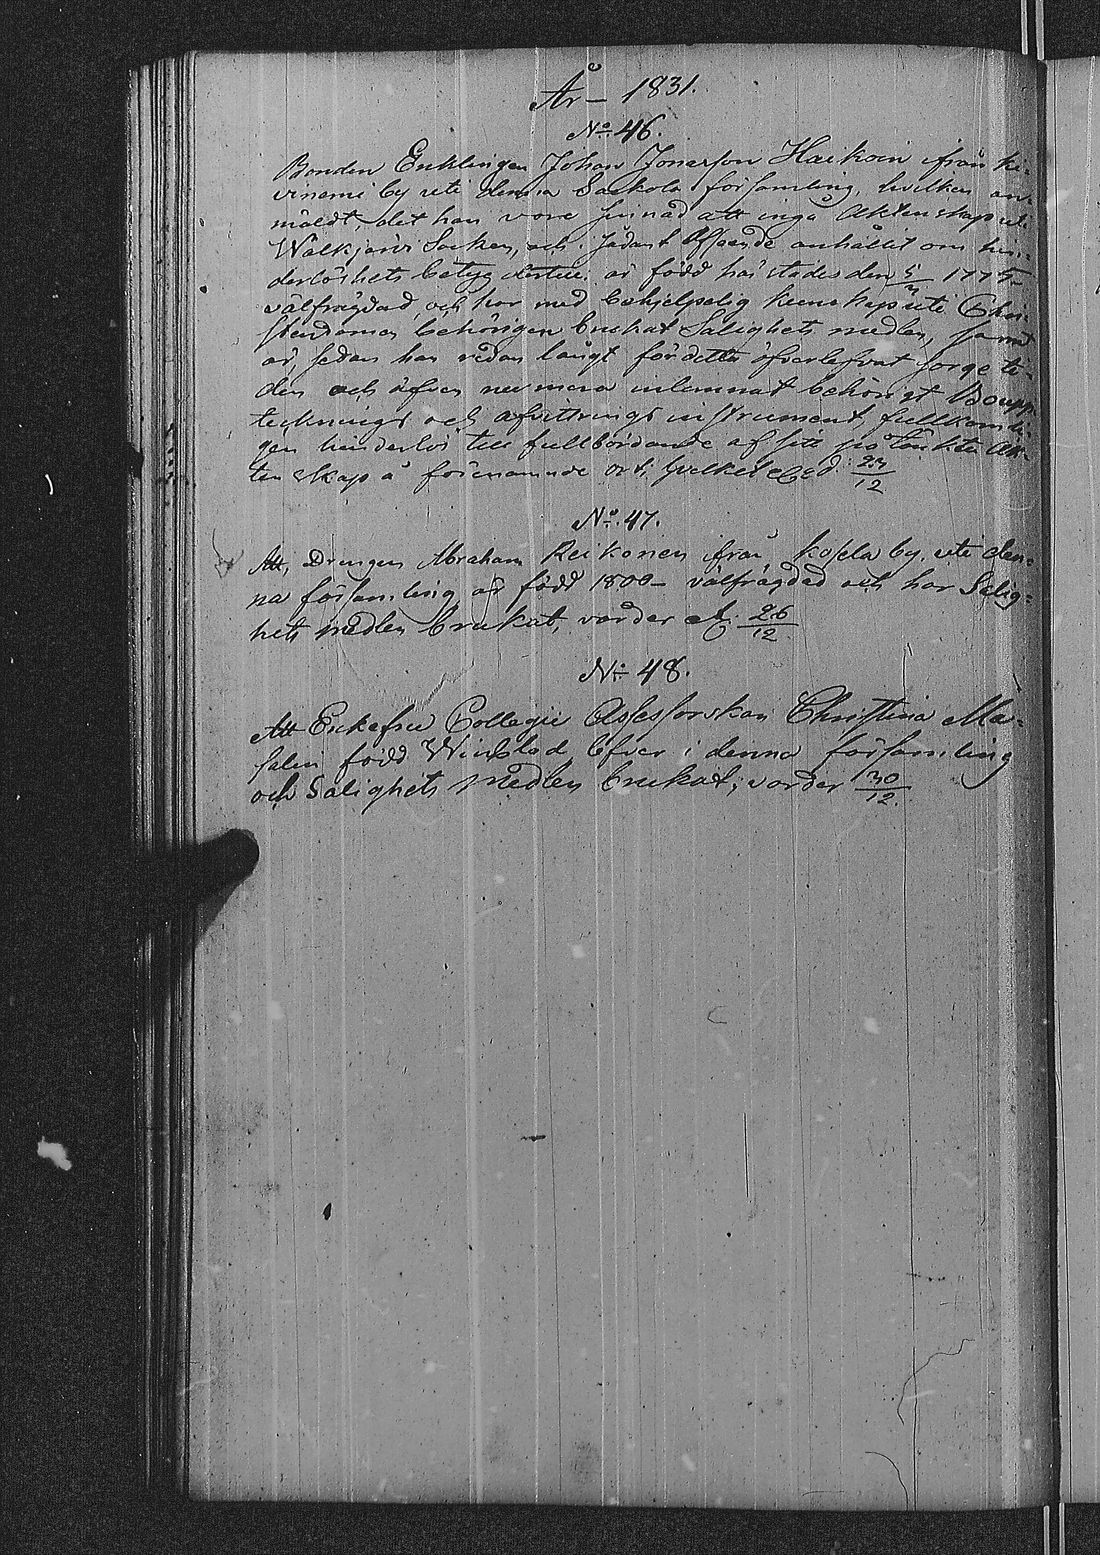 År – 1831.
No. 46.
Bonden Enklingen Johan Jonasson Haikoin från Ki-
vinemi by uti denna Sackola församling, hvilken an-
mäldt, det han vore sinnad att ingå Äktenskap uti
Walkjärvi Socken, och i sådant afseende anhållit om hin-
derlöshets betyg är född härstädes den 1775
välfrägdad, och har med behjelpelig kunskap uti Chri-
stendomen behörigen brukat Salighets medlen, samt
är, sedan han redan långt för detta öfverlefvat sorgeti-
den och äfven nu mera inlemnat behörigt Boupp-
tecknings och afvittrings instrument, fullkomli-
gen hinderlös till fullbordande af sitt påtänkta Äk-
tenskap å förenämnde ort; hvilket 23/12
No. 47.
Att, Drengen Abraham Reikonen från Kosela by, uti den-
na församling är född 1800 – välfrägdad och har Salig-
hets medlen brukat, varder 26/12
No. 48.
Att Enkefru Collegie Assessorskan Christina Ma-
salin född Windstad lefver i denna församling
och Salighets medlen brukat; varder 30/12.